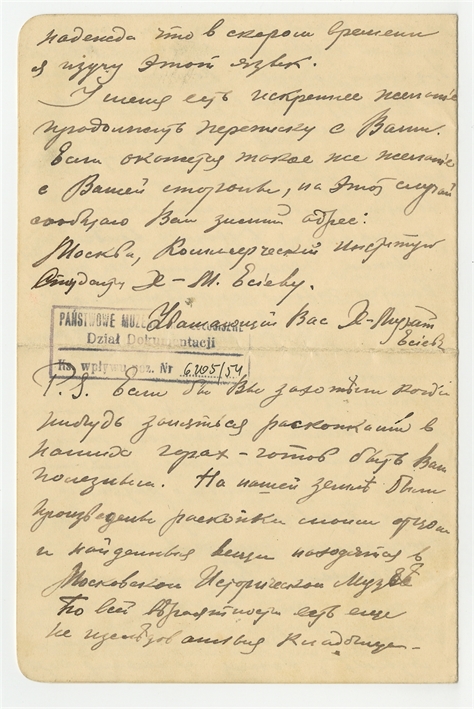 надежда что в скором времени
я изучу этот язык.
У меня есть искреннее желание
продолжить переписку с Вами.
Если окажется такое же желание
с Вашей стороны, на этот случай
сообщаю Вам зимний адрес:
Москва, Коммерческий Институт
Студенту Х-М. Есіеву.
Уважающий Вас Х-Мурат
Есіев
PAŃSTWOWE MUZ
Dział Dokumentacji
Ks. wpływu poz. Nr 6205/54
P.S. Если бы Вы захотели когда
нибудь заняться раскопками в
наших горах - готов быть Вам
полезным. На нашей землѣ были
произведены раскопки моим отцом
и найденные вещи находятся в
Московском Историческом Музеѣ
По всей вѣроятности есть еще
не изслѣдованныя кладбища-